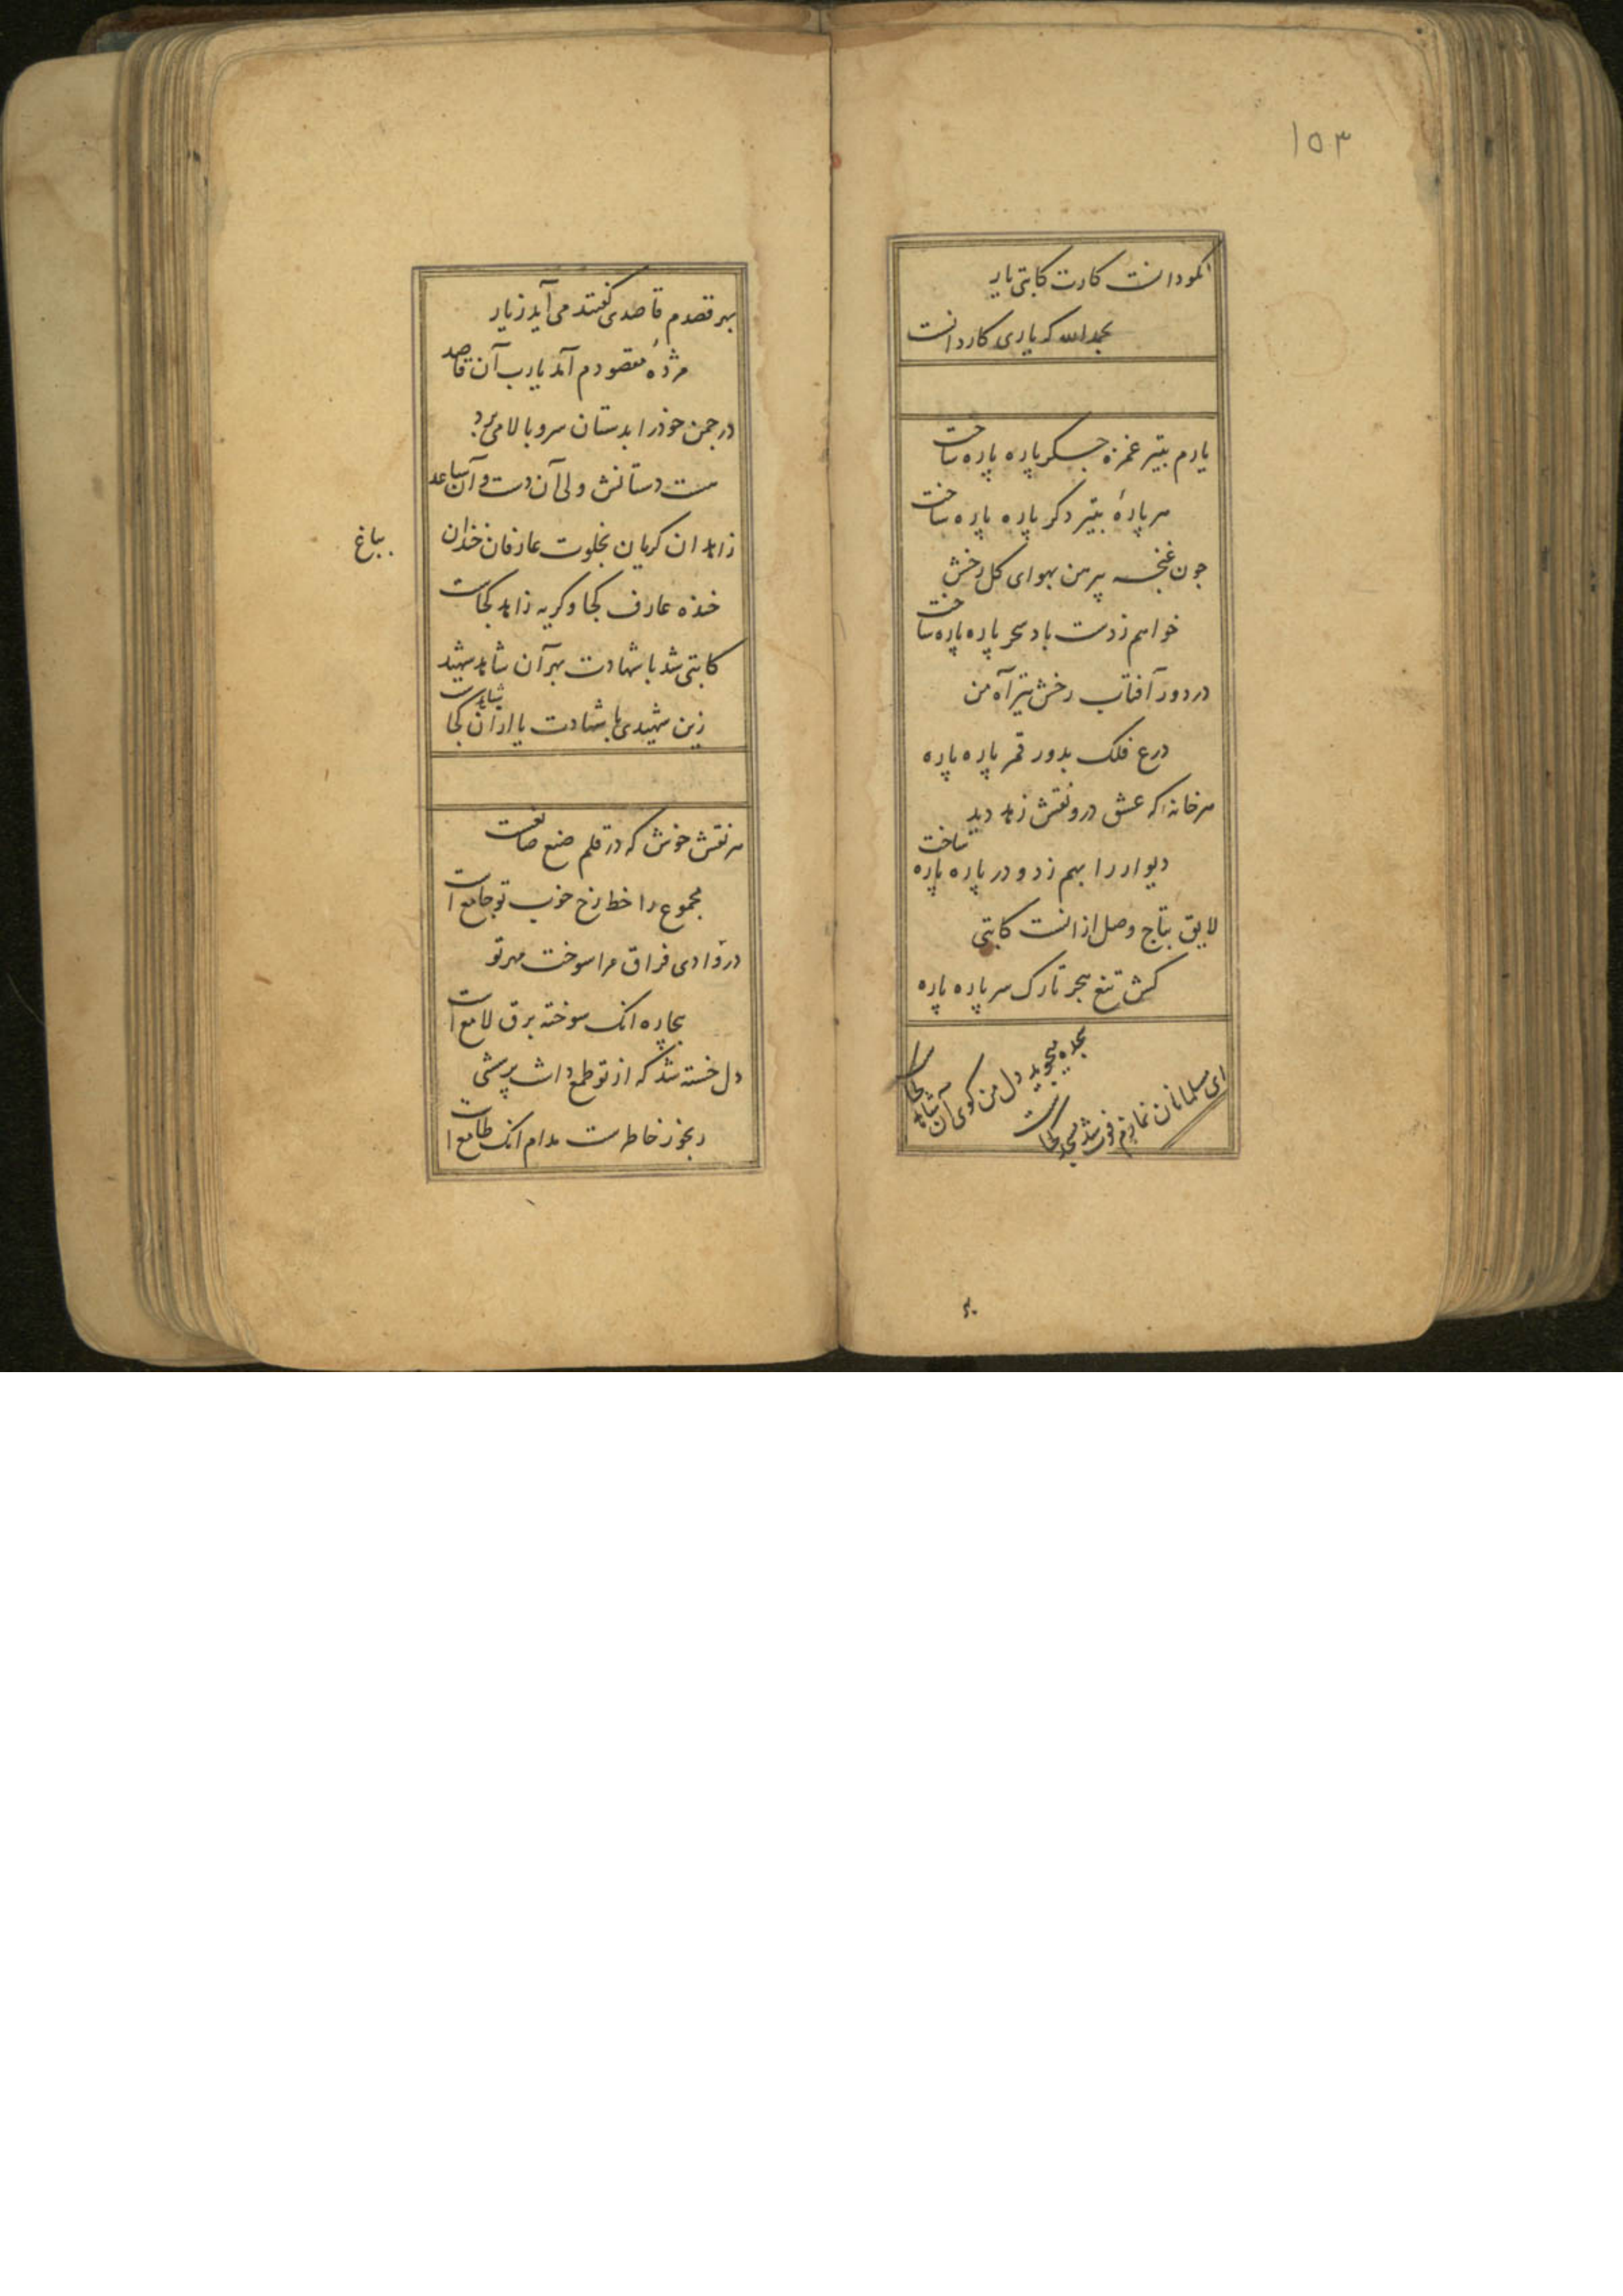 ١٥٣
نکودانست کارت کاتبی یار
بحمدالله که یاری کاردانست
یارم بتیر غمزه جگر پاره پاره ساخت
هر پارهٔ بتیر دکر پاره پاره ساخت
چون غنچه پیرهن بهوای کل رخش
خواهم ز دست باد سحر پاره پاره ساخت
در دور آفتاب رخش تیر آه من
درع فلک بدور قمر پاره پاره
هر خانه که عشق درو نقش زهد دید
دیوار را بهم زد و در پاره پاره ساخت
لایق بتاج وصل ازانست کاتبی
کش تیغ هجر تارک سر پاره پاره
ای مسلمانان نمازم فوت شد مسجد کجاست
سجده میجوید دل من کوی آن شاهد کجاست
بهر قصدم قاصدی کفتند می آید ز یار
مژدهٔ مقصودم آمد یارب آن قاصد
در چمن خود را بدستان سرو بالا می برد
هست دستانش ولی آن دست و آن ساعد
زاهدان کریان بخلوت عارفان خندان
بباغ
خنده عارف کجا و کریه زاهد کجاست
کاتبی شد با شهادت بهر آن شاهد شهید
زین شهیدی با شهادت یا ازان شاهد کجاست
هر نقش خوش که در قلم صنع صانعست
مجموع را خط رخ خوب تو جامع است
در وادی فراق مرا سوخت مهر تو
بیچاره انک سوخته برق لامع است
دل خسته شد که از تو طمع داشت پرسشی
رنجور خاطرست مدام انک طامع است